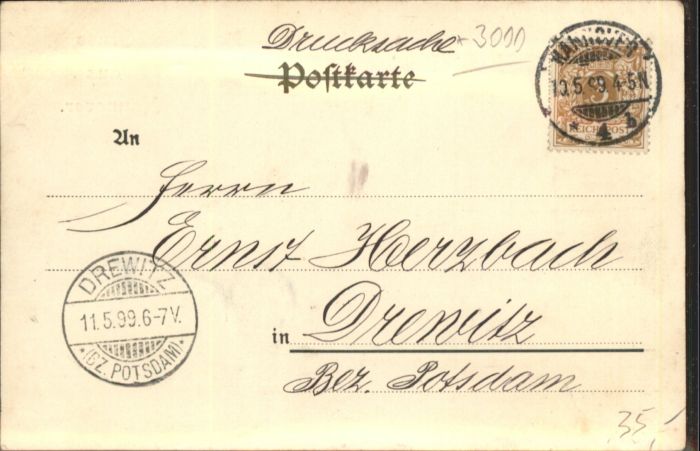 Drucksache 3000
Postkarte
HANNOVER 1
10.5.99.4-5N.
* 4 b
3
REICHSPOST
An
Herrn
Ernst Herzbach
DREWITZ
11.5.99.6-7V.
*(BZ. POTSDAM)*
in Drewitz
Bez. Potsdam
35,-